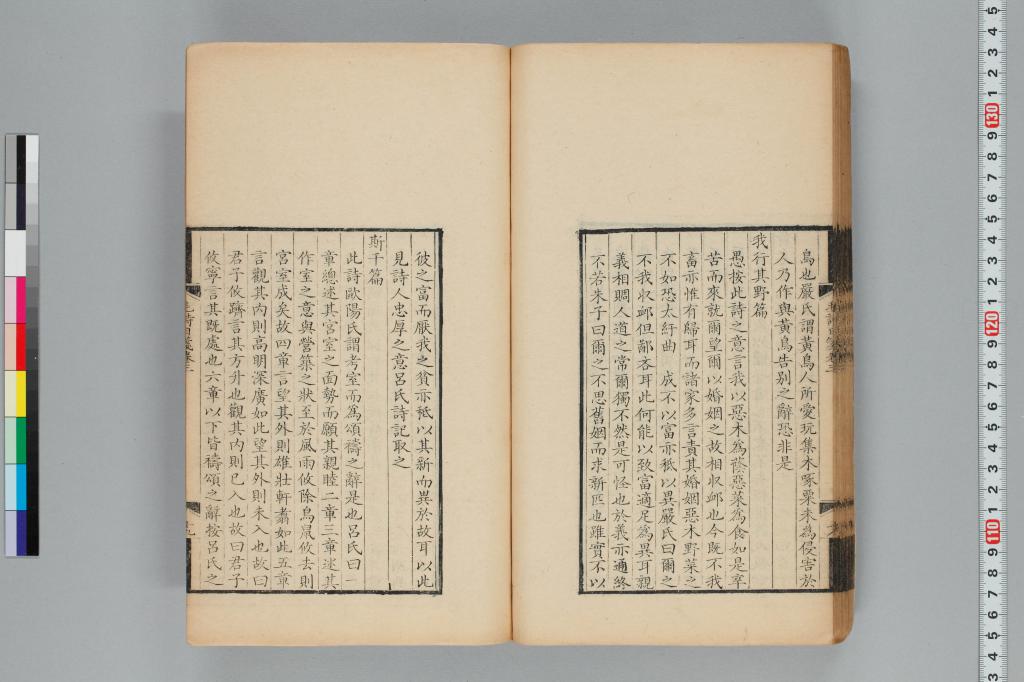 鳥也嚴氏謂黃鳥人所愛玩集木啄粟未為侵害於
人乃作與黃鳥告别之辭恐非是
我行其野篇
愚按此詩之意言我以惡木為蔭惡菜為食如是卒
苦而來就爾望爾以婚姻之故相収䘏也今既不我
畜亦惟有歸耳而諸家多言責其婚姻惡木野菜之
不如恐太紆曲 成不以富亦秪以異嚴氏曰爾之
不我収䘏但鄙吝耳此何能以致富適足為異耳親
義相賙人道之常爾獨不然是可怪也於義亦通終
不若朱子曰爾之不思舊姻而求新匹也雖實不以
彼之富而厭我之貧亦秪以其新而異於故耳以此
見詩人忠厚之意呂氏詩記取之
斯干篇
此詩歐陽氏謂考室而為頌禱之辭是也呂氏曰一
章總述其宮室之面勢而願其親睦二章三章述其
作室之意與營築之狀至於風雨攸除鳥鼠攸去則
宮室成矣故四章言望其外則雄壯軒翥如此五章
言觀其内則高明深廣如此望其外則未入也故曰
君子攸躋言其方升也觀其内則已入也故曰君子
攸寧言其既處也六章以下皆禱頌之辭按呂氏之